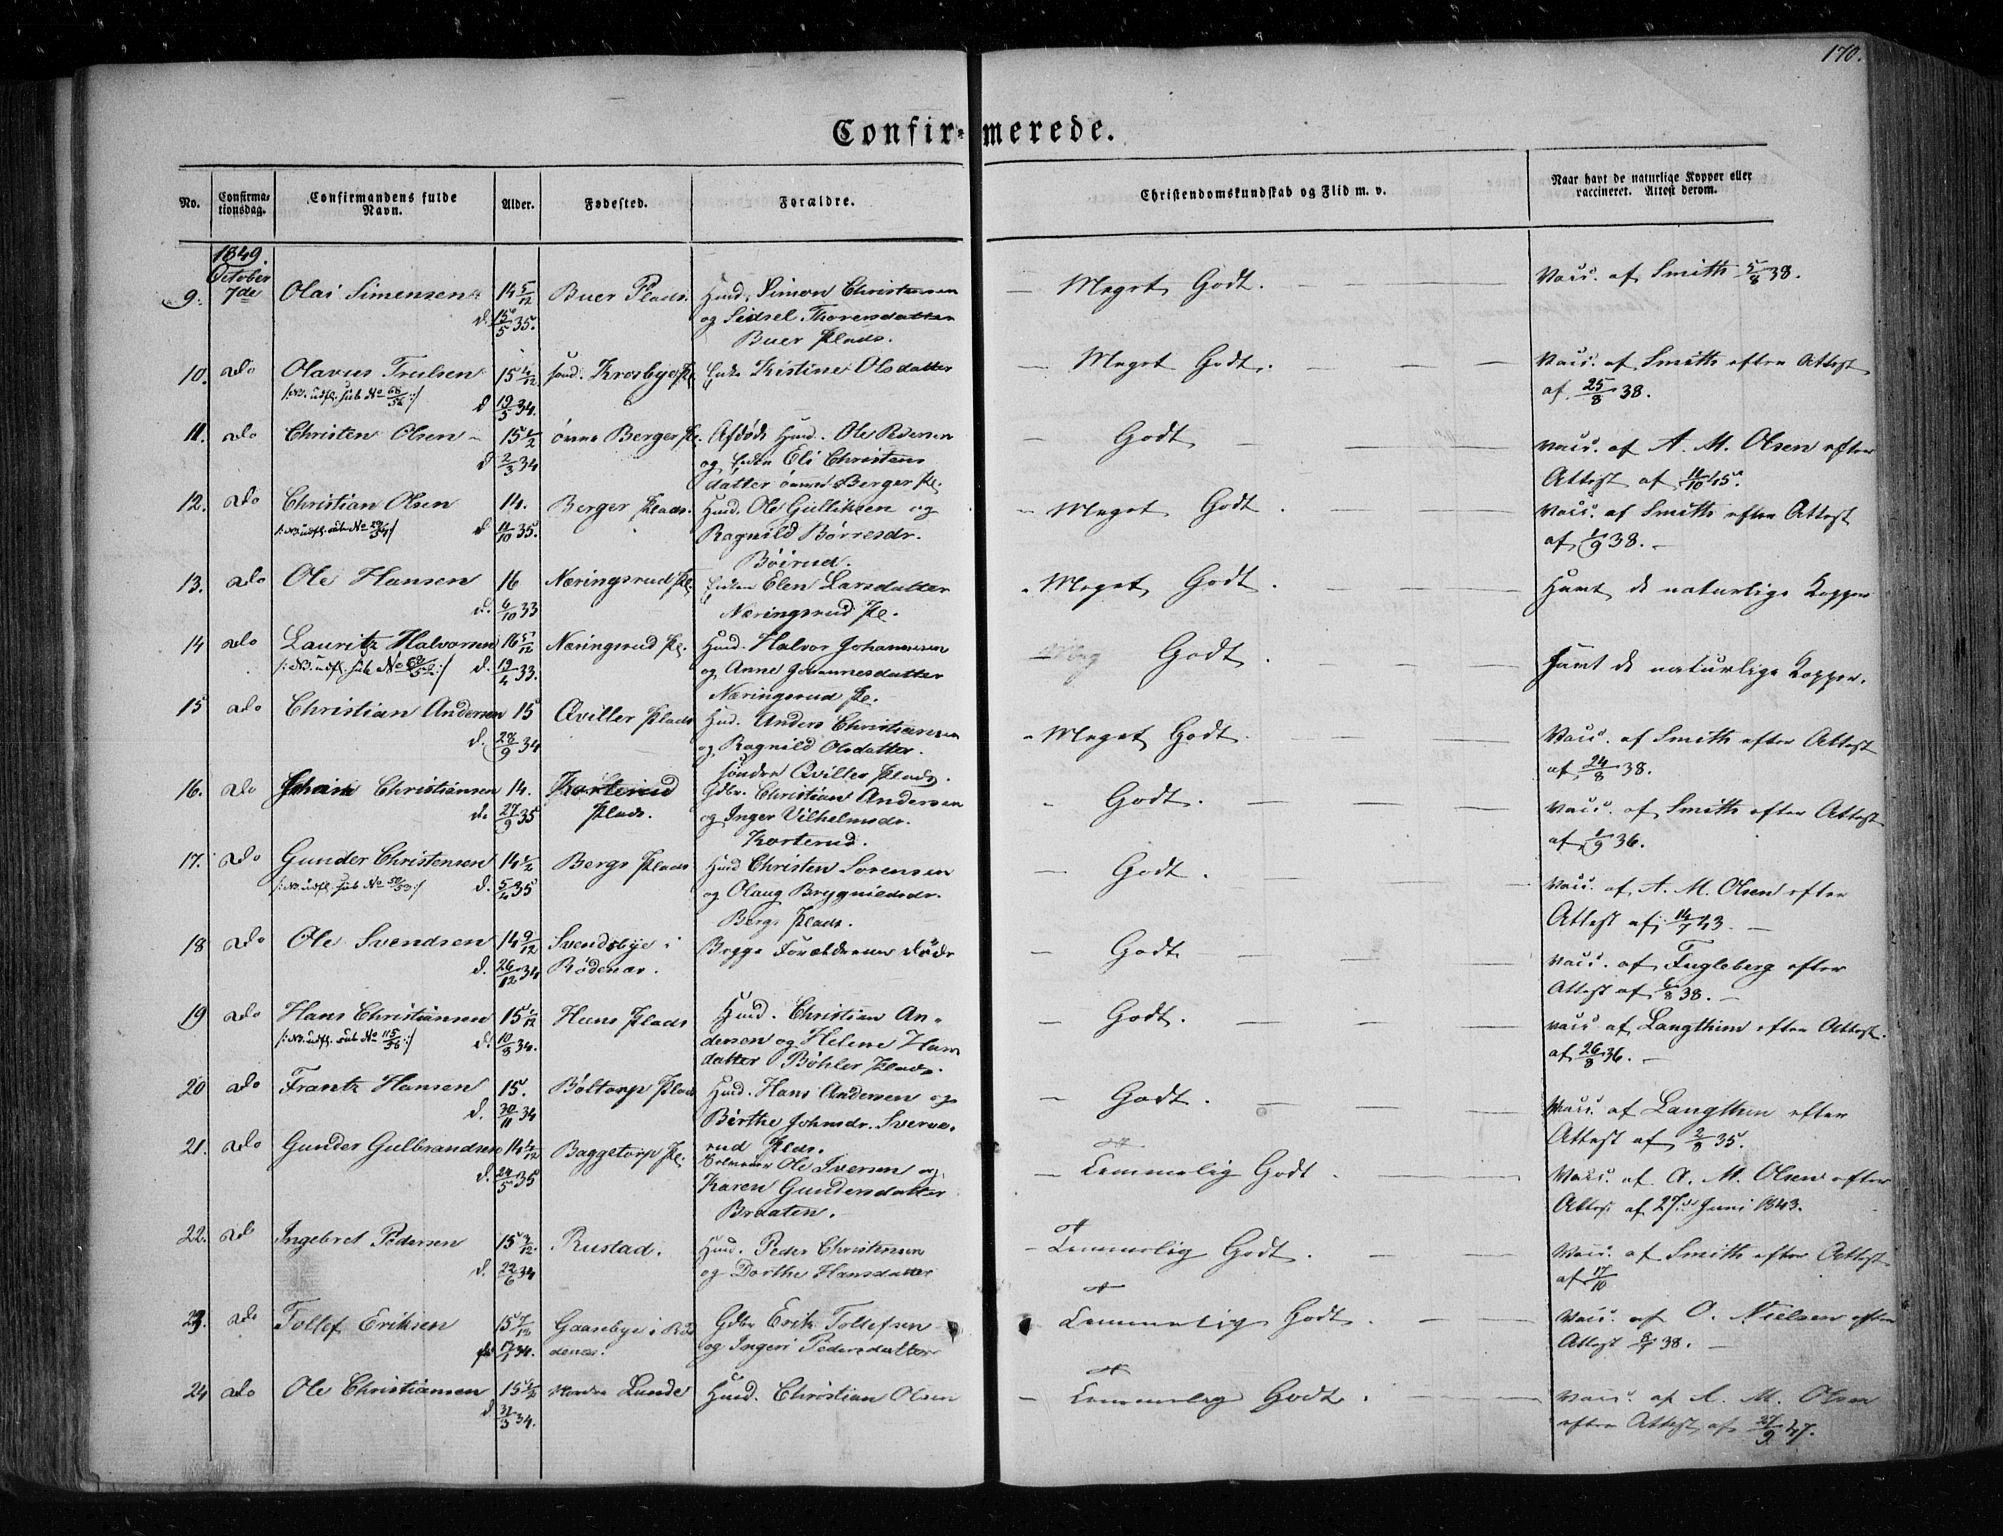 170.
Confirmerede.
No.
Confirma-
tionsdag.
Confirmandens fulde
Navn.
Alder.
Fødested.
Forældre.
Christendomskundskab og Flid m. v.
Naar havt de naturlige Kopper eller
vaccineret. Attest derom.
1849.
October
9. 7de Olai Simensen 14 5/12 Buer Plads. Huusm. Simon Christensen — Meget Godt. — Vacc. af Smith 5/8 38.
d. 15/5 35. og Sidsel Thorersdatter
Buer Plads.
10. do Olavus Trulsen 15 Krosbye Pl. Enke Kistine Olsdatter — Meget Godt. — Vacc. af Smith efter Attest
/: NB. udfl. sub No 66/56 :/ d 19/5 34. af 25/8 38.
11. do Christen Olsen 15 1/2 Berger Pl. Afdøde Huusm. Ole Pedersen — Godt — Vacc. af A. M. Olsen efter
d 2/3 34 og Enke Eli Christens
datter Berger Pl. Attest af 11/10 45.
12. do Christian Olsen 14. Berger Plads. Huusm. Ole Gulliksen og — Meget Godt. — Vacc. af Smith efter Attest
/: NB. udfl. sub No :/ d 11/10 35. Ragnild Børresdr. af 1/9 38. —
Böirud.
13. do Ole Hansen 16 Næringsrud Pl. Enken Elen Larsdatter — Meget Godt. — Havt de naturlige Kopper
d. 6/10 33 Næringsrud Pl.
14 do Lauritz Halvorsen 16 5/12 Næringsrud Pl. Huusm. Halvor Johannesen Godt. — Havt de naturlige Kopper.
/: NB. udfl. sub No :/ d. 19/4 33. og Anne Johannesdatter
Næringsrud Pl.
15 do Christian Andersen 15 Qviller Plads Huusm. Anders Christiansen — Meget Godt. — Vacc. af Smith efter Attest
d. 28/9 34 og Ragnild Olsdatter. af 24/8 38.
søndre Qviller Plads.
16. do Johan Christiansen 14. Korterud Gdbr. Christian Andersen — Godt. — Vacc. af Smith efter Attest
d. 27/9 35 Plads. og Inger Vilhelmsdr. af 1/9 36.
Korterud.
17. do Gunder Christensen 14 1/2 Bergs Plads Huusm Christen Sorensen — Godt. — Vacc. af A. M. Olsen efter
/: NB. udfl. sub No 50/53 :/ d. 5/4 35 og Olaug Brygnildsdr. Attest af 14/7 43. —
Bergs Plads.
18 do Ole Svendsen 14 9/12 Svendsbye i Begge Forældrene døde — Godt — Vacc. af Fugleberg efter
d. 26/12 34 Rødenæs. Attest af 6/8 38. —
19 do Hans Christiansen 15 1/12 Huns Plads Huusm. Christian An- — Godt. — Vacc af Langthim efter Attest.
/: NB. udfl. sub No 115/56 :/ d. 10/8 34. dersen og Helene Hans af 26/8 36. —
datter Böhler Plads.
20 do Frantz Hansen 15. Böltorp Plads Huusm. Hans Andersen og — Godt. — Vacc. af Langthim efter
d. 30/11 34 Birthe Johnsdr. Sverve- Attest af 2/9 35.
rud Plds.
21. do Gunder Gulbrandsen 14 4/12 Baggetorp Pl. Ole Iversen og — Temmelig Godt. — Vacc. af A. M. Olsen efter
d. 24/5 35 Karen Gundersdatter Attest af 27. Juni 1843.
Braaten.
22. do Ingebret Pedersen 15 3/12. Rustad. Huusm. Peder Christensen — Temmelig Godt. — Vacc. af Smith efter Attest
d. 22/6 34 og Dorthe Hansdatter af 17/10
23. do Tollef Eriksen 15 7/12 Gaasebye i Rö- Gdbr Erik Tollefsen Temmelig Godt. — Vacc. af O. Nielsen efter
34. denæs. og Ingeri Pedersdatter Attest 38. —
24 do Ole Christiansen 15 1/2 Nordre Lunde Huusm. Christian Olsen — Temmelig Godt. — Vacc. af A. M. Olsen
d 31/3 34. efter Attest af 27/9 47.